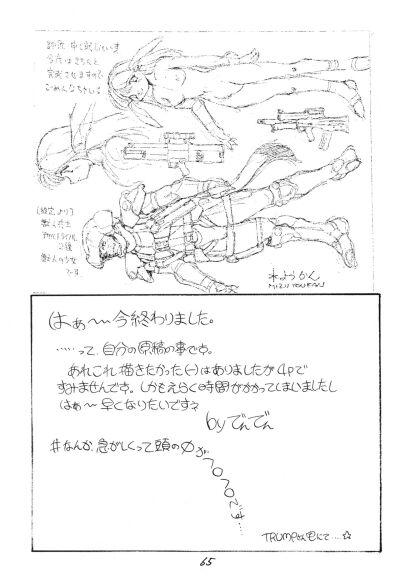 申し訳ないです
今度はきちんと
完成させますので
ごめんなちゃい
獣人の少女
でーす
水ようかん
MIZU YOUKAN
はぁ〜今終わりました。
……って、自分の原稿の事です。
あれこれ描きたかった(一)はありましたが4Pで
すみませんです。しかもえらく時間がかかってしまいましたし
はぁ〜早くなりたいですネ
byでんでん
#なんか、急がしくって頭の中が
パロパロです…
TRUMPさん宅にて…☆
65